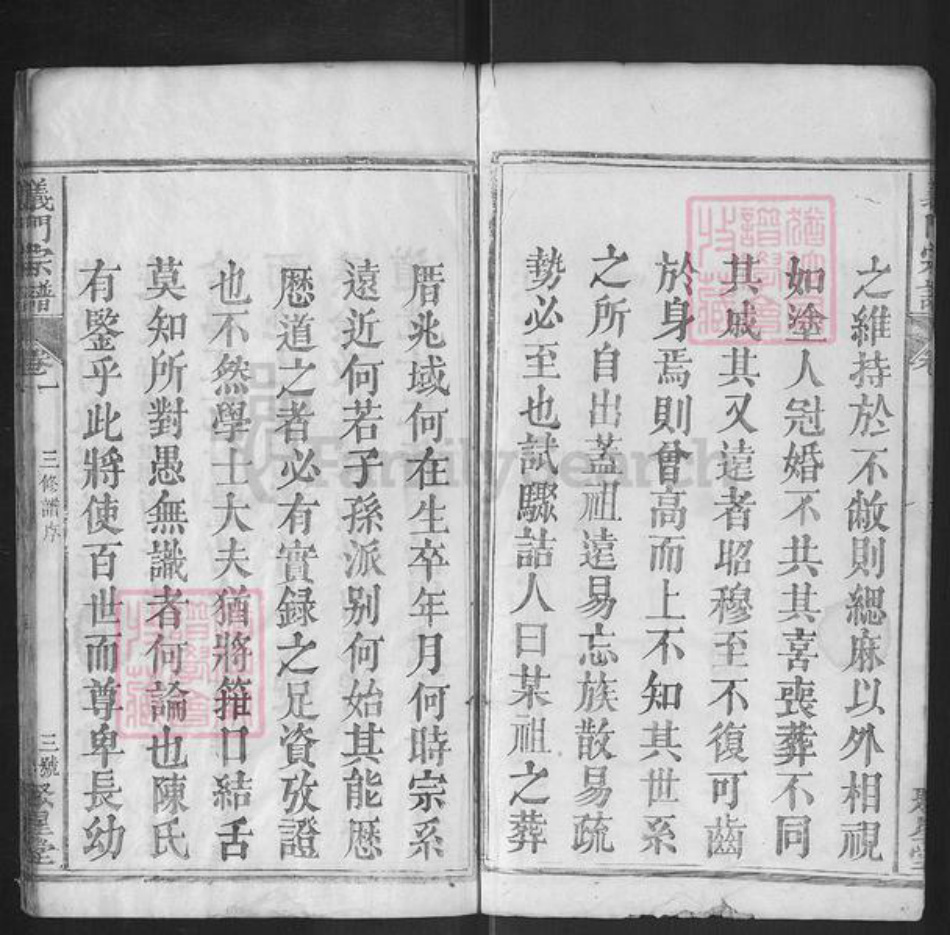 之維持於不敝則緦麻以外相視
如塗人冠婚不共其喜喪葬不同
其戚其又遠者昭穆至不復可齒
於身焉則曾高而上不知其世系
之所自出蓋祖遠易忘族散易疏
勢必至也試驟詰人曰某祖之葬
厝兆域何在生卒年月何時宗系
遠近何若子孫派别何始其能歷
歷道之者必有實録之足資攷證
也不然學士大夫猶將箝口結舌
莫知所對愚無識者何論也陳氏
有鑒乎此將使百世而尊卑長幼
義門宗譜
卷一
三修譜序
三號
聚星堂
FamilySearch